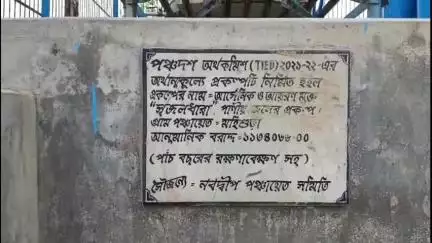 পঞ্চদশ অর্থকমিশ (TIED) ২০২১-২২-এর
অর্থানুকূল্যে প্রকল্পটি নির্মিত হইল
প্রকল্পের নাম = আর্সেনিক ও আয়রণ মুক্ত
"সুজলধারা" পানীয় জলের প্রকল্প।
গ্রাম পঞ্চায়েত = মাইশুড়া
আনুমানিক বরাদ্দ = ১১৩৪০৬৬-০০
(পাঁচ বছরের রক্ষণাবেক্ষণ সহ)
সৌজন্যে = নবদ্বীপ পঞ্চায়েত সমিতি